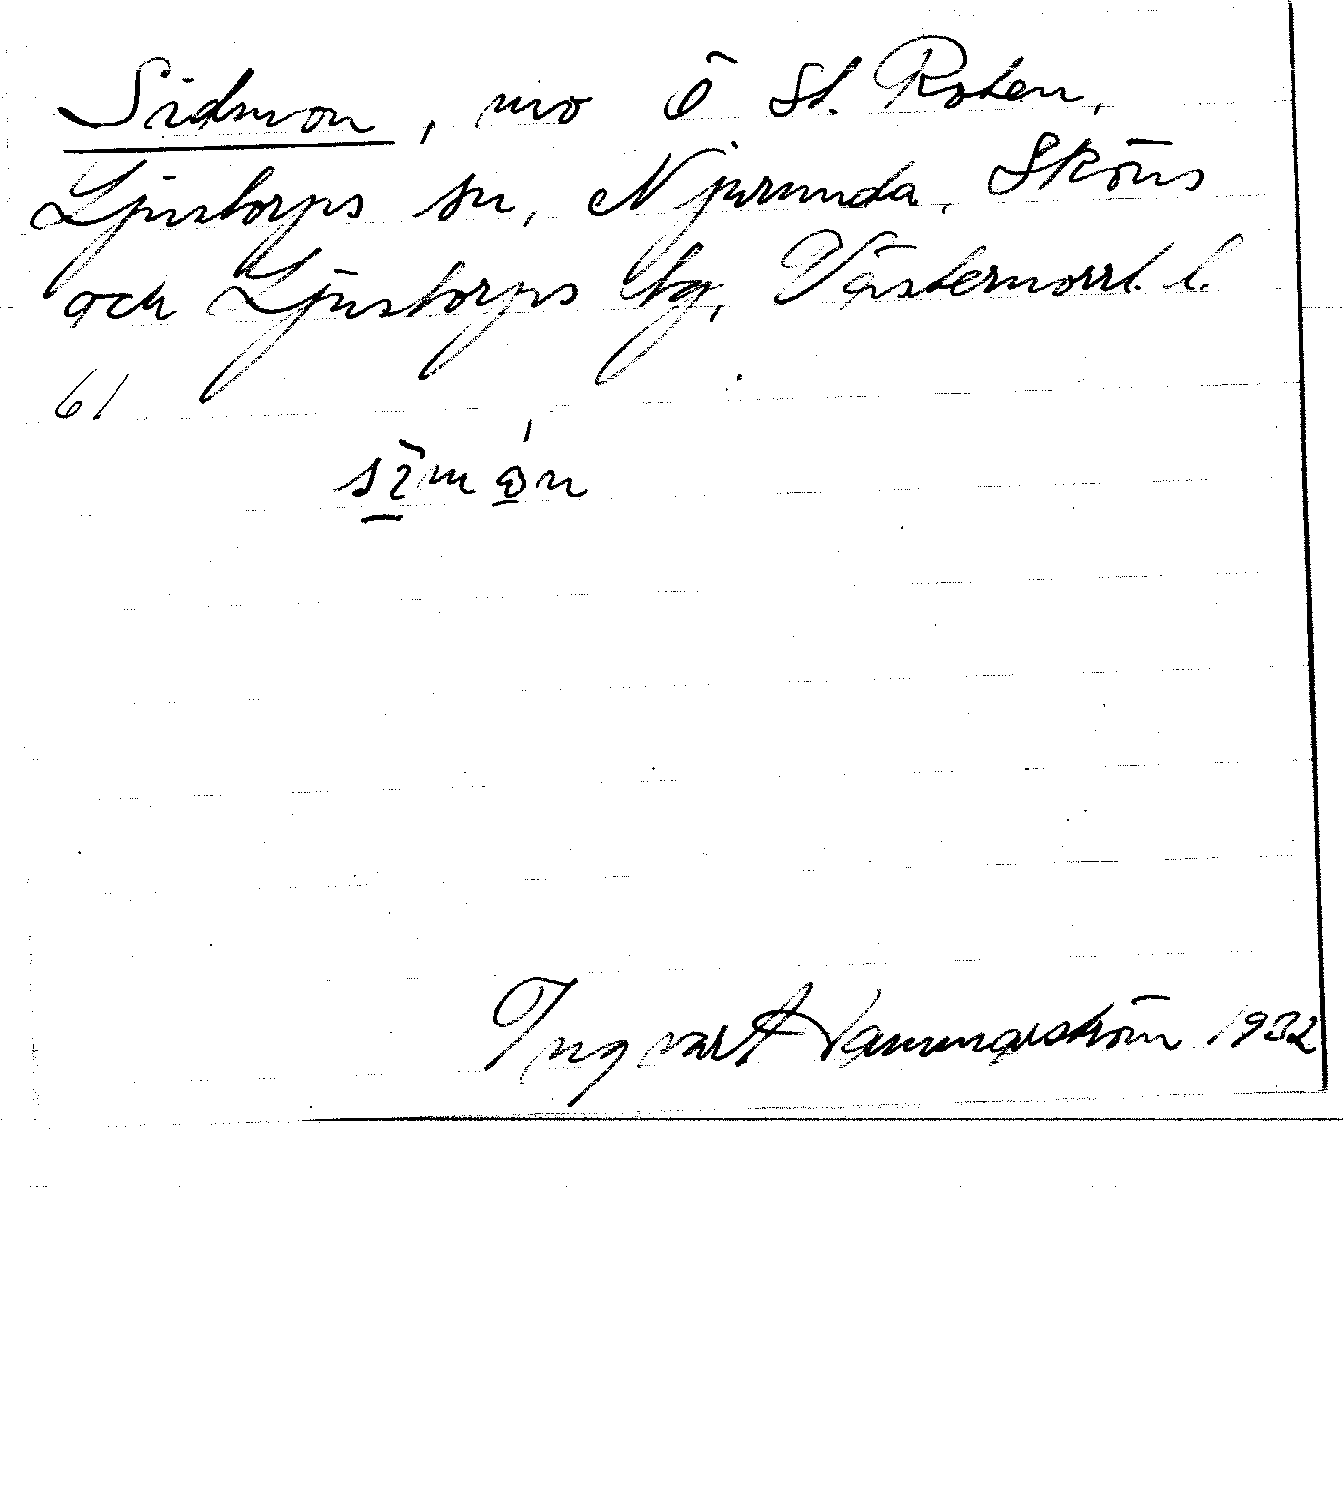 Sidmon, mo Ö St. Roten,
Ljustorps sn, Njurunda, Sköns
och Ljustorps tg, Västernorrl. l.
61
Ingvar 1932